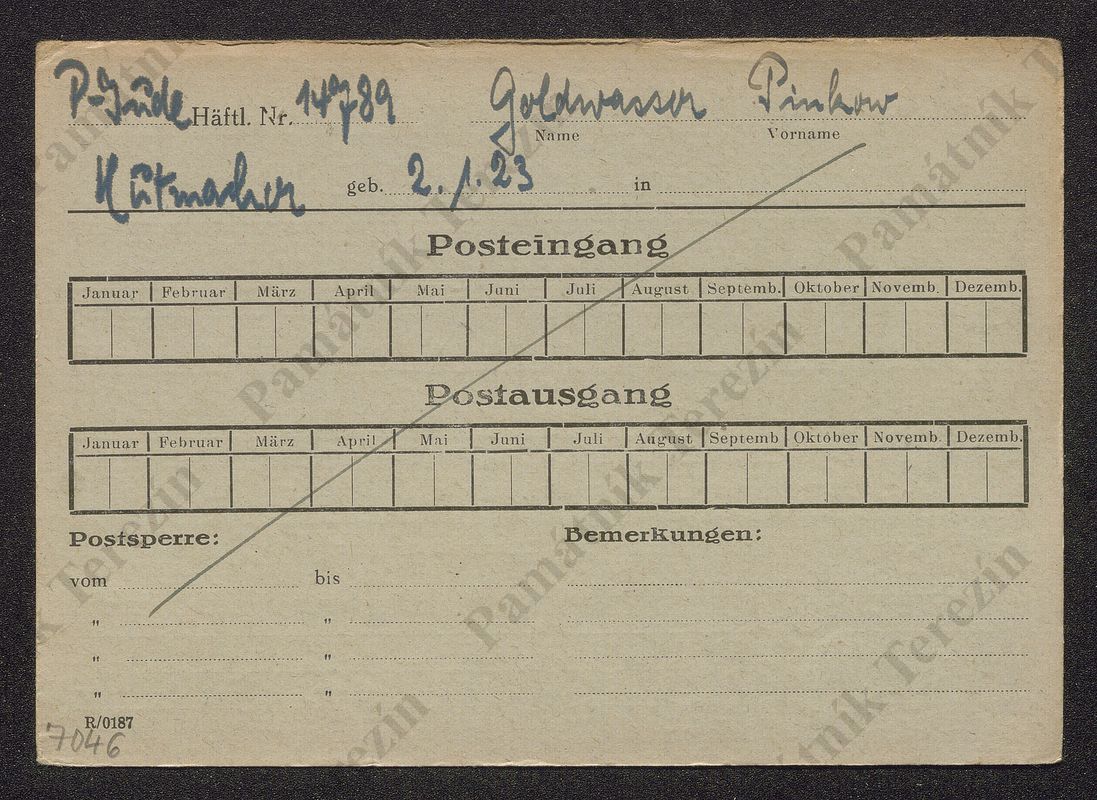 P-Jude Häftl. Nr. 14789 Goldwasser Pinkow
Name Vorname
Hutmacher geb. 2.1.23 in
Posteingang
Januar Februar März April Mai Juni Juli August Septemb. Oktober Novemb. Dezemb.
Postausgang
Januar Februar März April Mai Juni Juli August Septemb Oktober Novemb. Dezemb.
Postsperre: Bemerkungen:
vom bis
" "
" "
" "
R/0187
7046
Památník Terezín